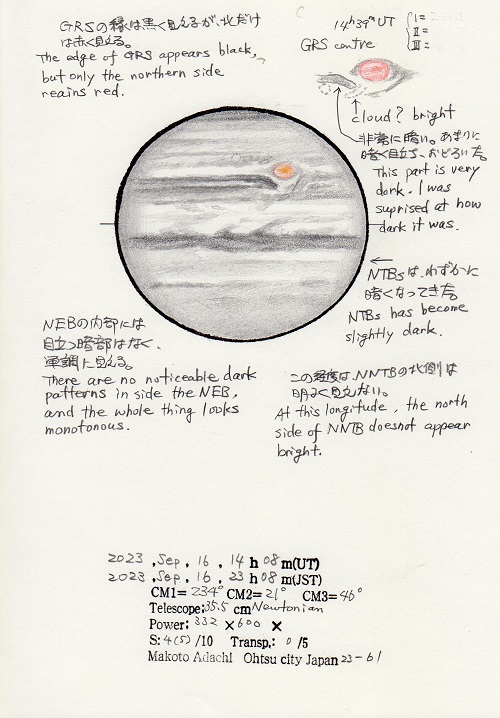 GRSの縁は黒く見えるが、北だけ
は赤く見える。
The edge of GRS appears black,
but only the northern side
reains red.
14h39m UT
I=
II=
III=
GRS centre
cloud? bright
非常に暗い。あまりに
暗く目立ち、おどろいた。
This part is very
dark. I was
suprised at how
dark it was.
NTBsは、わずかに
暗くなってきた。
NTBs has become
slightly dark.
NEBの内部には
目立つ暗部はなく、
単調に見える。
There are no noticeable dark
patterns in side the NEB,
and the whole thing looks
monotonous.
この経度は、NNTBの北側は
明るく見えない。
At this longitude, the north
side of NNTB doesnot appear
bright.
2023 ,Sep, 16, 14 h 08 m(UT)
2023 ,Sep, 16, 23 h 08 m(JST)
CM1= 234° CM2= 21° CM3= 46°
Telescope; 35.5 cm Newtonian
Power; 332 × 600 ×
S: 4(5) /10 Transp.: 0 /5
Makoto Adachi Ohtsu city Japan 23-61